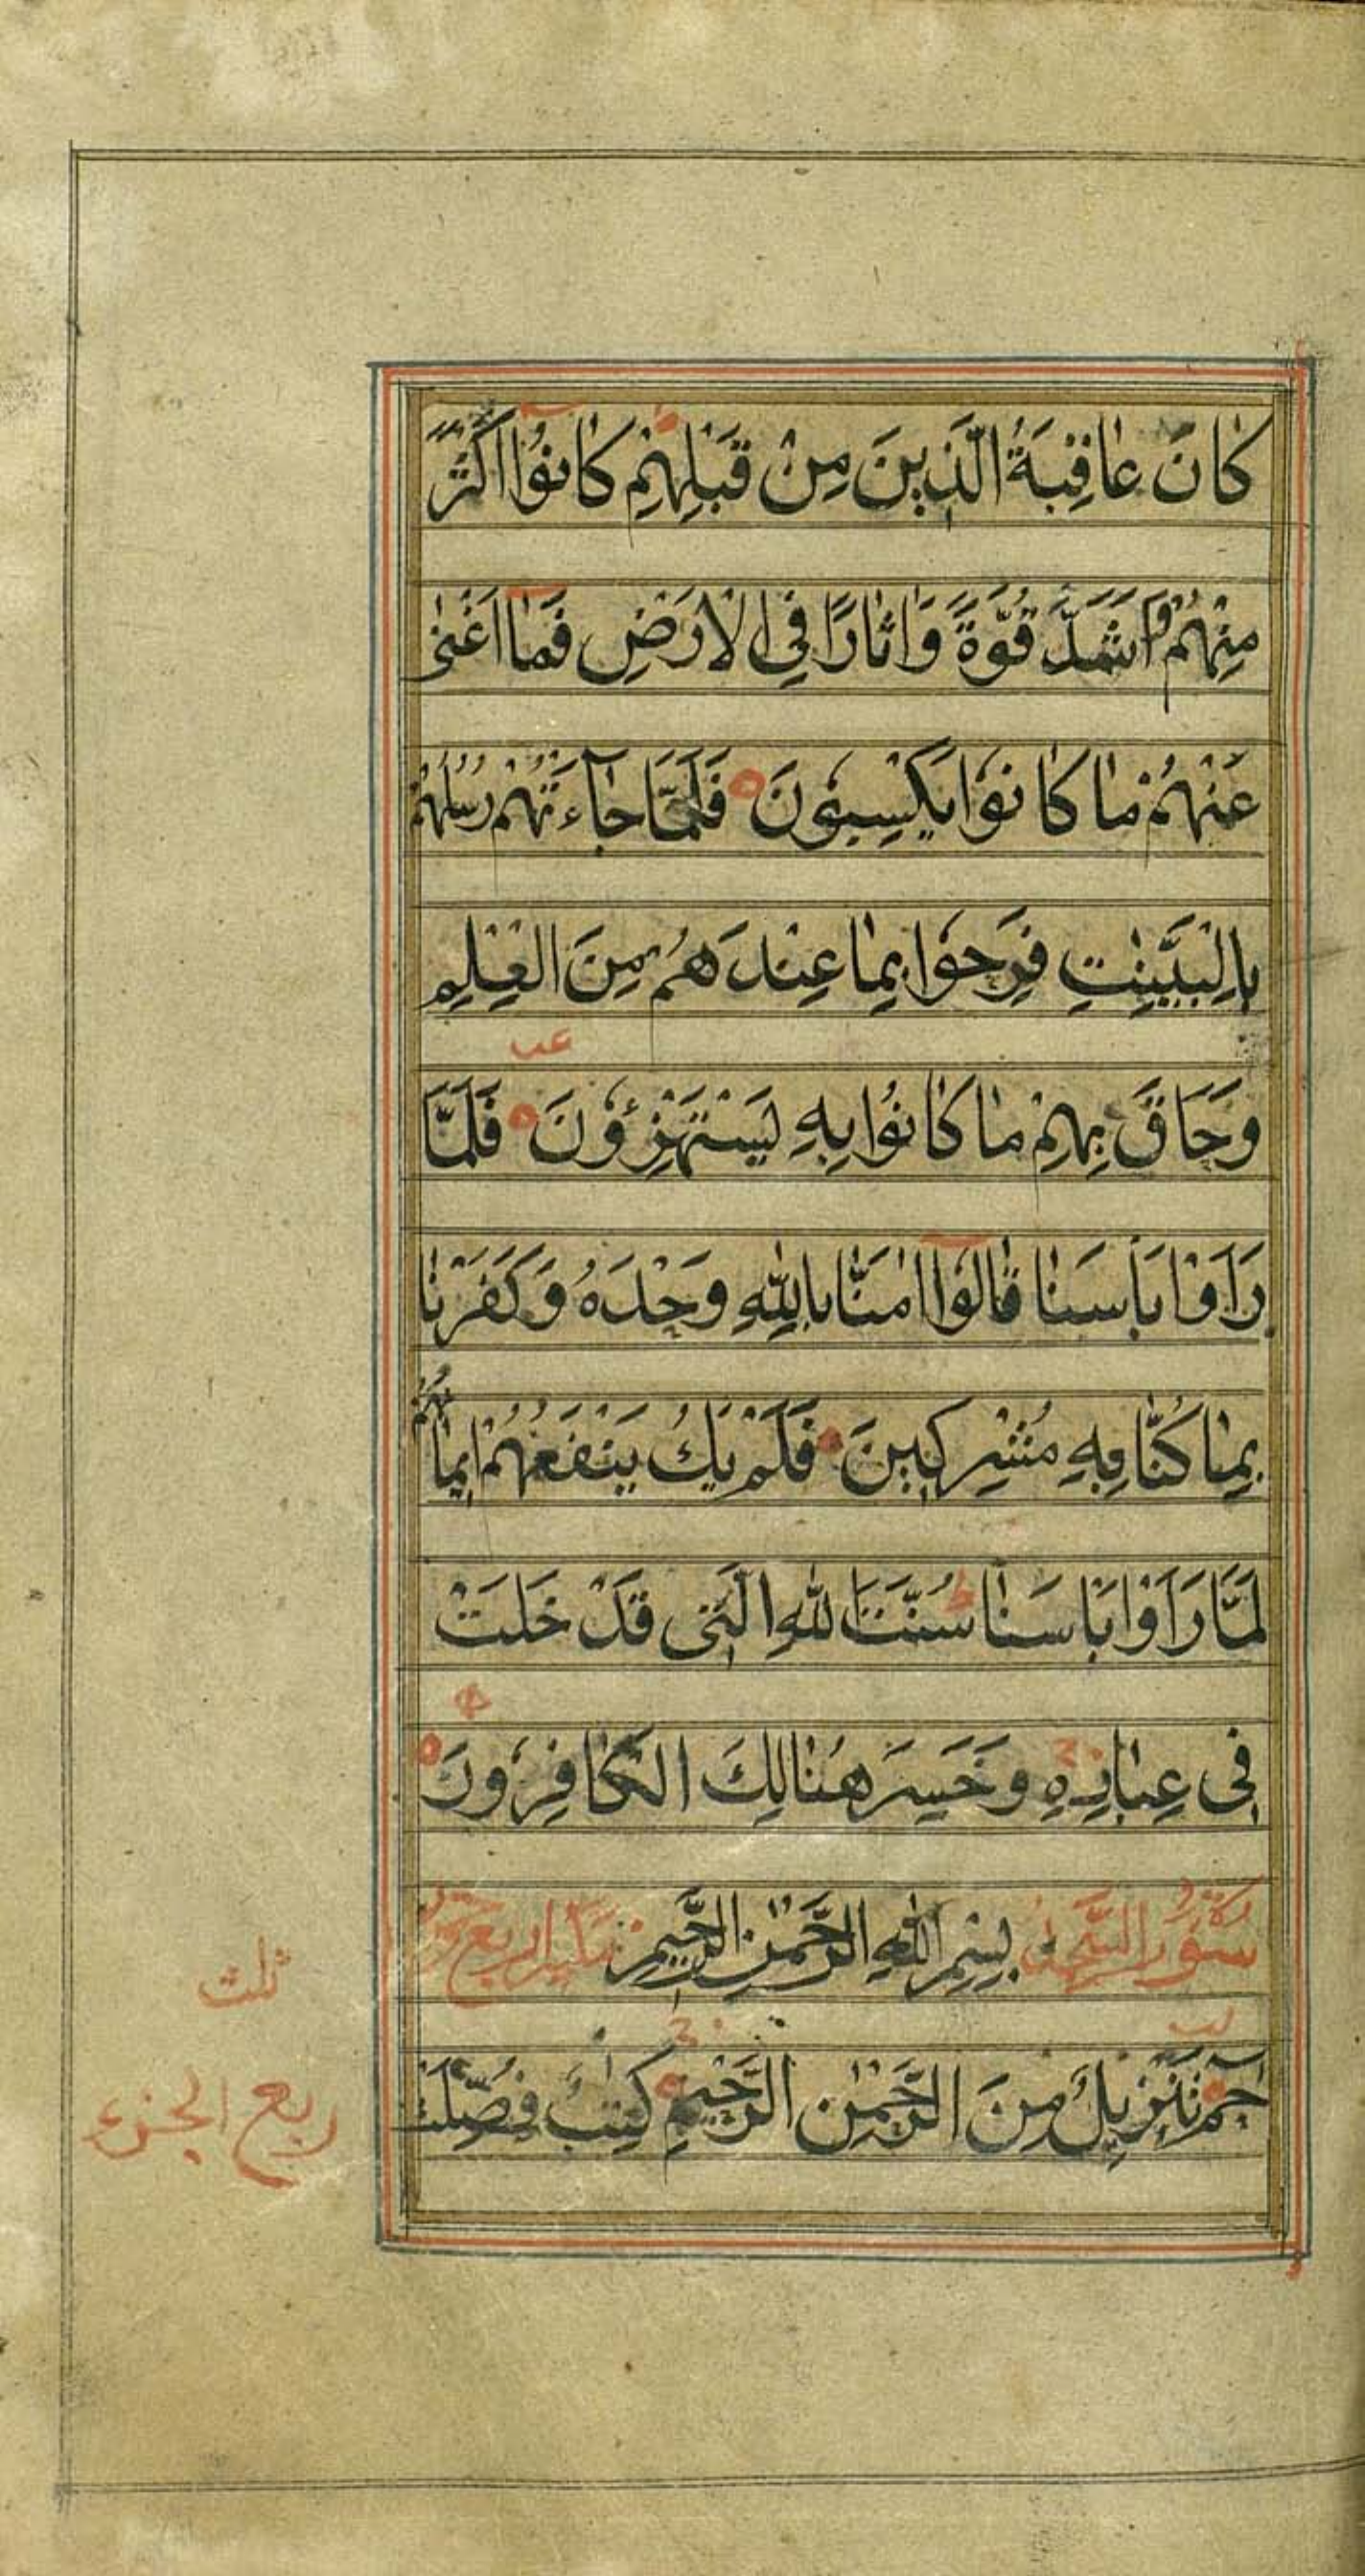 كَانَ عَاقِبَةُ الَّذِينَ مِنْ قَبْلِهِمْ كَانُوا اَكْثَرَ
مِنْهُمْ وَاَشَدَّ قُوَّةً وَاٰثَارًا فِي الْاَرْضِ فَمَا اَغْنٰى
عَنْهُمْ مَا كَانُوا يَكْسِبُونَ فَلَمَّا جَآءَتْهُمْ رُسُلُهُمْ
بِالْبَيِّنٰتِ فَرِحُوا بِمَا عِنْدَهُمْ مِنَ الْعِلْمِ
عب
وَحَاقَ بِهِمْ مَا كَانُوا بِهِ يَسْتَهْزِؤُونَ فَلَمَّا
رَاَوْا بَاْسَنَا قَالُوا اٰمَنَّا بِاللّٰهِ وَحْدَهُ وَكَفَرْنَا
بِمَا كُنَّا بِهِ مُشْرِكِينَ فَلَمْ يَكُ يَنْفَعُهُمْ اِيمَانُهُمْ
لَمَّا رَاَوْا بَاْسَنَا سُنَّتَ اللّٰهِ الَّتِي قَدْ خَلَتْ
فِي عِبَادِهِ وَخَسِرَ هُنَالِكَ الْكَافِرُونَ
سورة السجدة بِسْمِ اللّٰهِ الرَّحْمٰنِ الرَّحِيمِ
لب
حٰمٓ تَنْزِيلٌ مِنَ الرَّحْمٰنِ الرَّحِيمِ كِتٰبٌ فُصِّلَتْ
ثلث
ربع الجزء